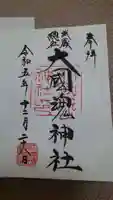 奉拝
武蔵
総社
大國魂神社
令和五年十二月二十八日